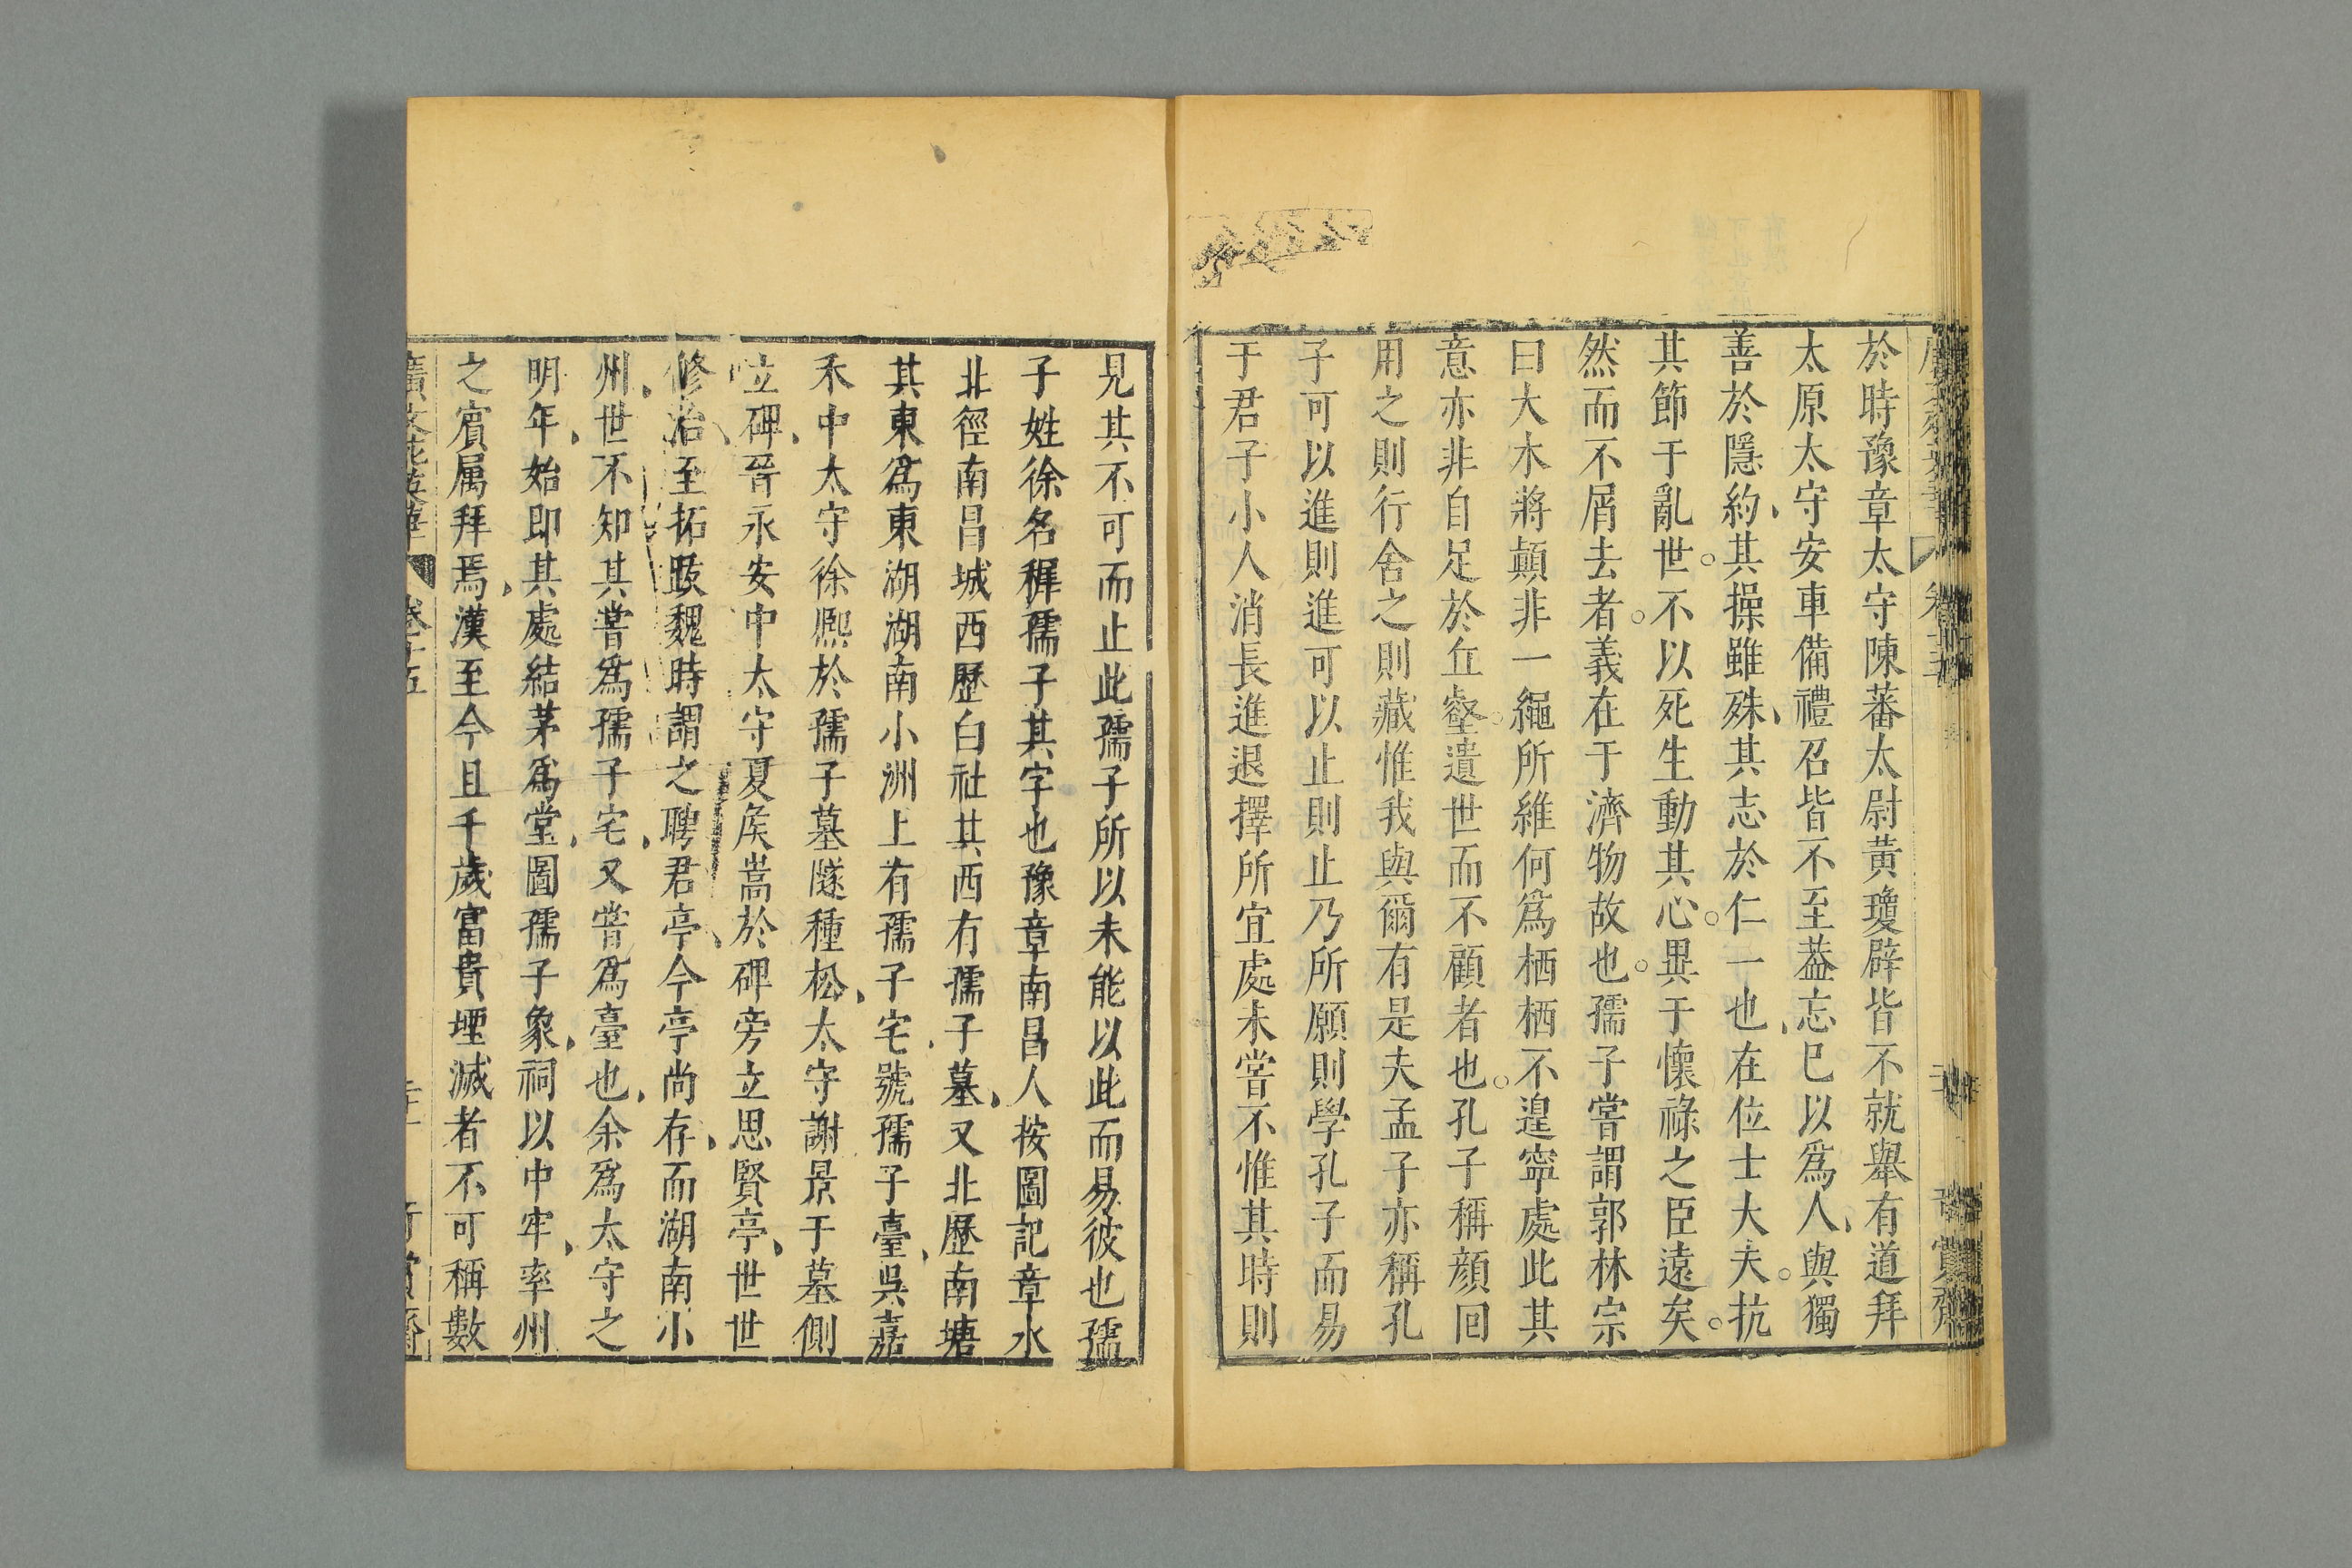 於時豫章太守陳蕃太尉黃瓊辟皆不就舉有道拜
太原太守安車備禮召皆不至葢忘巳以爲人與獨
善於隱約其操雖殊其志於仁一也在位士大夫抗
其節于亂世不以死生動其心異于懷祿之臣遠矣
然而不屑去者義在于濟物故也孺子嘗謂郭林宗
曰大木將顛非一繩所維何爲栖栖不遑寧處此其
意亦非自足於丘壑遺世而不顧者也孔子稱顔回
用之則行舍之則藏惟我與爾有是夫孟子亦稱孔
子可以進則進可以止則止乃所願則學孔子而易
于君子小人消長進退擇所宜處未嘗不惟其時則
見其不可而止此孺子所以未能以此而易彼也孺
子姓徐名穉孺子其字也豫章南昌人按圖記章水
北徑南昌城西歷白社其西有孺子墓又北歷南塘
其東爲東湖湖南小洲上有孺子宅號孺子臺吳嘉
禾中太守徐熈於孺子墓隧種松太守謝景于墓側
立碑晉永安中太守夏矦嵩於碑旁立思賢亭世世
修治至拓跋魏時謂之聘君亭今亭尚存而湖南小
州世不知其嘗爲孺子宅又嘗爲臺也余爲太守之
明年始即其處結茅爲堂圖孺子象祠以中牢率州
之賓属拜焉漢至今且千歲富貴堙滅者不可稱數